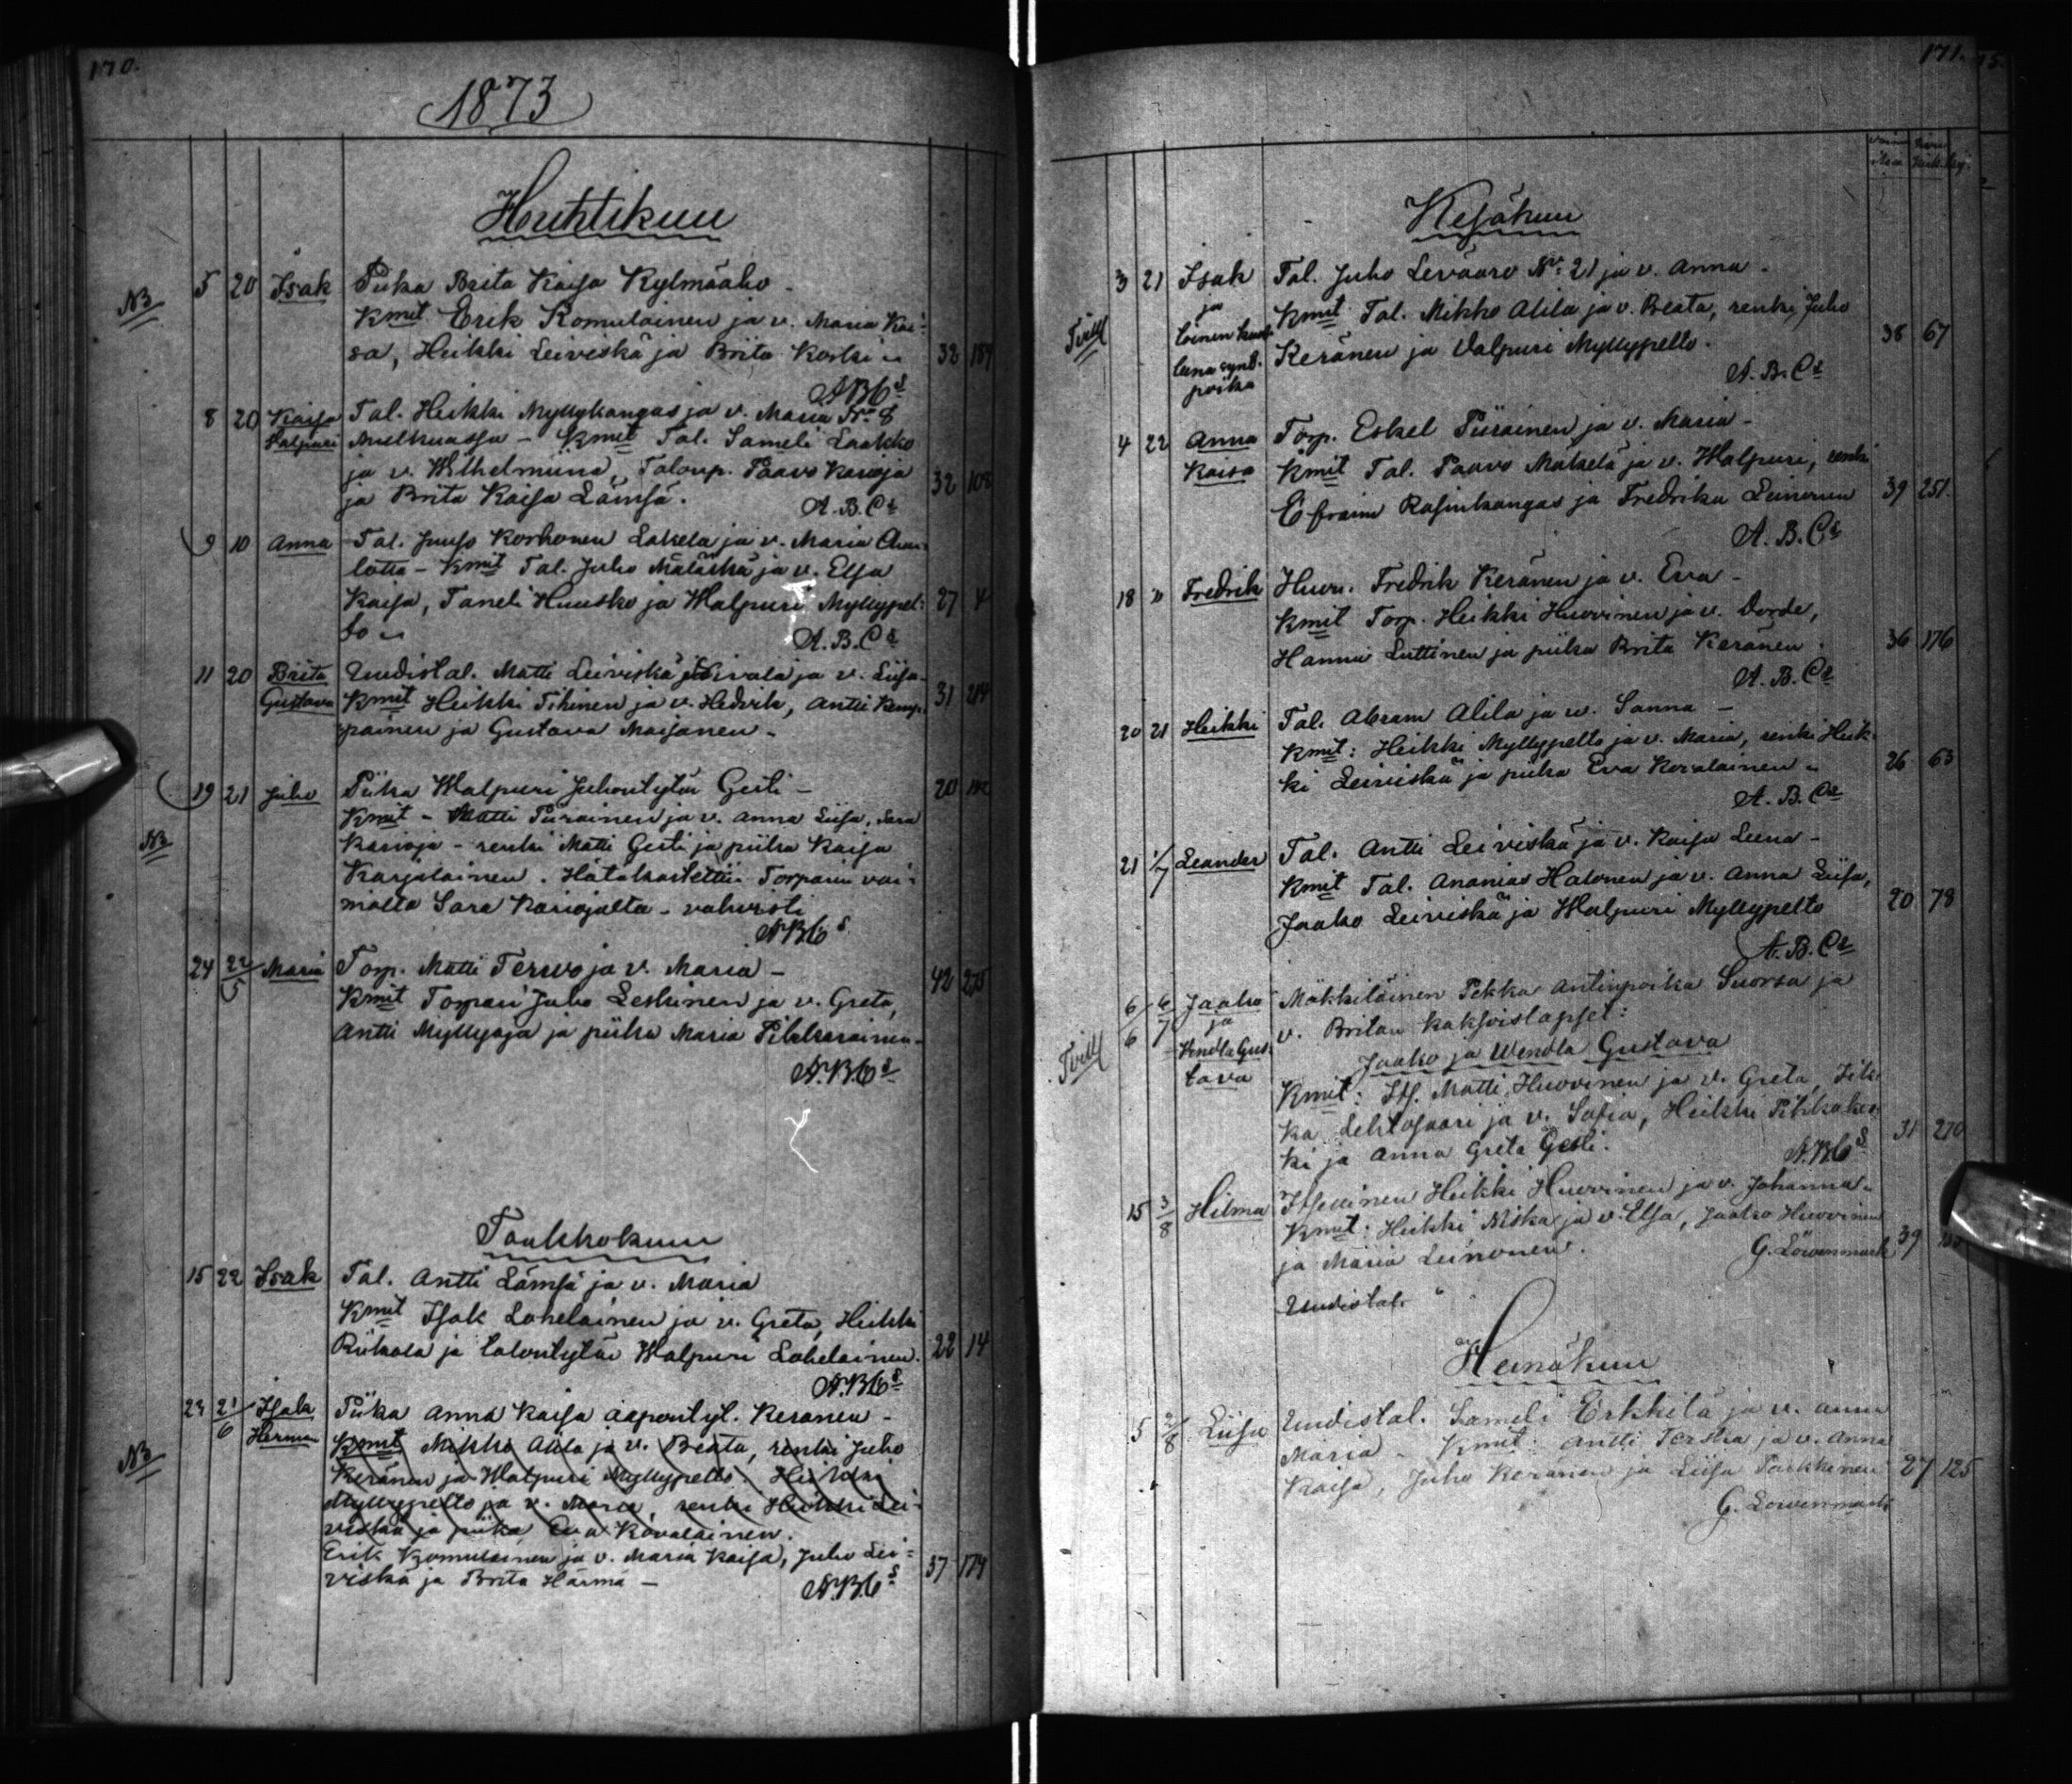 170.
1873
Huhtikuu
NB
5 20 Isak Piika Brita Kaisa Kylmäaho -
Kmit Erik Komulainen ja v. Maria Kai-
sa, Heikki Leiviskä ja Brita Koski 32 189
A.B.Cs
8 20 Kaisa Walpuri Tal. Heikki Myllykangas ja v. Maria No 8
- Kmit Tal. Sameli Laakko
ja v. Wilhelmiina, Talonp. Paavo Karioja
ja Brita Kaisa Lämsä. 32 108
A.B.Cs
9 10 Anna Tal. Juuso Korhonen Lakela ja v. Maria Char-
lotta - Kmit Tal. Juho Määlskä ja v. Elsa
Kaisa, Taneli Huusko ja Walpuri Myllypel- 27 4
to
A.B.Cs
11 20 Brita Gustava Uudistal. Matti Leiviskä ja v. Liisa
Kmit Heikki Tihinen ja v. Hedvik, Antti Kemp- 31 214
painen ja Gustava Maijanen -
19 21 Juho Piika Walpuri Juhontytär Gesti - 20
NB
Kmit - Matti Piirainen ja v. Anna Liisa, Sara
Karioja - renki Matti Gesti ja piika Kaisa
Karjalainen. Hätäkastettu Torparin vai-
molta Sara Kariojalta - vahvisti
A.B.Cs
24 22/5 Maria Torp. Matti Terwo ja v. Maria - 42 275
Kmit Torpari Juho Leskinen ja v. Greta,
Antti Myllyoja ja piika Maria Pikkarainen -
A.B.Cs
Toukkokuu
15 22 Isak Tal. Antti Lämsä ja v. Maria
Kmit Isak Lohelainen ja v. Greta, Heikki
Riikola ja talontytär Walpuri Lohelainen. 22 14
A.B.Cs
NB
23 21/6 Isak Herman Piika Anna Kaisa Aapontyt. Keränen -
Kmit Mikko Alila ja v. Beata, renki Juho
Keränen ja Walpuri Myllypelto. Heikki
Myllypelto ja v. Maria, renki Heikki Lei-
viskä ja piika Eva Kovalainen.
Erik Komulainen ja v. Maria Kaisa, Juho Lei-
viskä ja Brita Härmä - 37 174
A.B.Cs
171.
Kesäkuu
Tvill
3 21 Isak ja toinen synt. poika Tal. Juho Leväaro No 21 ja v. Anna -
Kmit Tal. Mikko Alila ja v. Beata, renki Juho
Keränen ja Valpuri Myllypelto. 38 67
A.B.Cs
4 22 Anna Kaisa Torp. Eskel Piirainen ja v. Maria -
Kmit Tal. Paavo Mäkelä ja v. Walpuri, renki
Efraim Rasinkangas ja Fredrika Leinonen 39 251.
A.B.Cs
18 " Fredrik Huon. Fredrik Keränen ja v. Eva -
Kmit Torp. Heikki Huovinen ja v. Dorde,
Hannu Luttinen ja piika Brita Keränen. 36 176
A.B.Cs
20 21 Heikki Tal. Abram Alila ja v. Sanna -
Kmit: Heikki Myllypelto ja v. Maria, renki Heik-
ki Leiviskä ja piika Eva Kovalainen 26 63
A.B.Cs
21 1/7 Leander Tal. Antti Leiviskä ja v. Kaisa Leena -
Kmit Tal. Ananias Halonen ja v. Anna Liisa,
Jaako Leiviskä ja Walpuri Myllypelto 20 78
A.B.Cs
Tvill
6 6 6/7 Jaako ja Wendla Gustava Mökkiläinen Pekka Antinpoika Suorsa ja
v. Britan kaksoislapset:
Jaako ja Wendla Gustava
Kmit: Its. Matti Huovinen ja v. Greta,
ka Lehtosaari ja v. Sofia, Heikki Pikkukos-
ki ja Anna Greta Gesti. 31 270
A.B.Cs
15 3/8 Hilma Itsellinen Heikki Huovinen ja v. Johanna
Kmit: Heikki Niska ja v. Elsa, Jaako Huovinen
ja Maria Leinonen. 39
G. Löwenmark
Uudistal.
Heinäkuu
5 2/8 Liisa Uudistal. Sameli Erkkilä ja v. Anna
Maria - Kmit: Antti Terska ja v. Anna
Kaisa, Juho Keränen ja Liisa Pääkkönen 27 125
G. Löwenmark